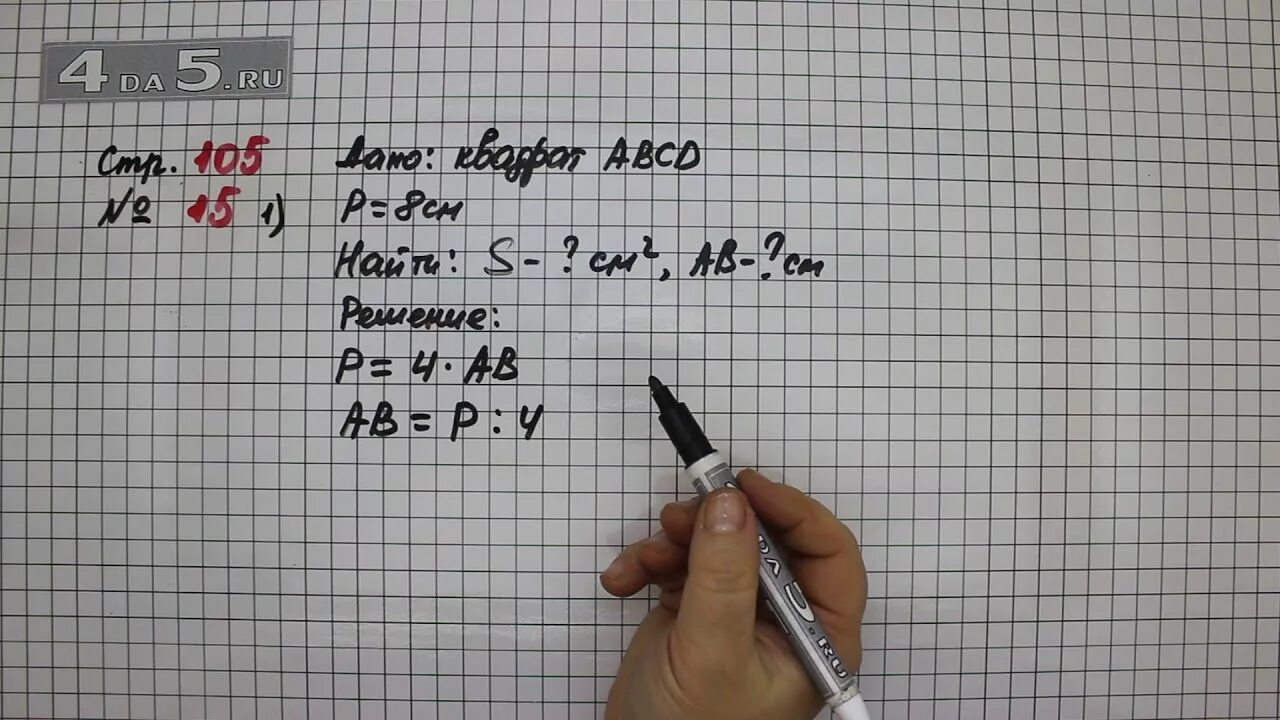 4 DA 5.RU
Стр. 105
№ 15 1)
Дано: квадрат ABCD
P = 8см
Найти: S - ? см², AB - ? см
Решение:
P = 4 · AB
AB = P : 4
DA 5.RU